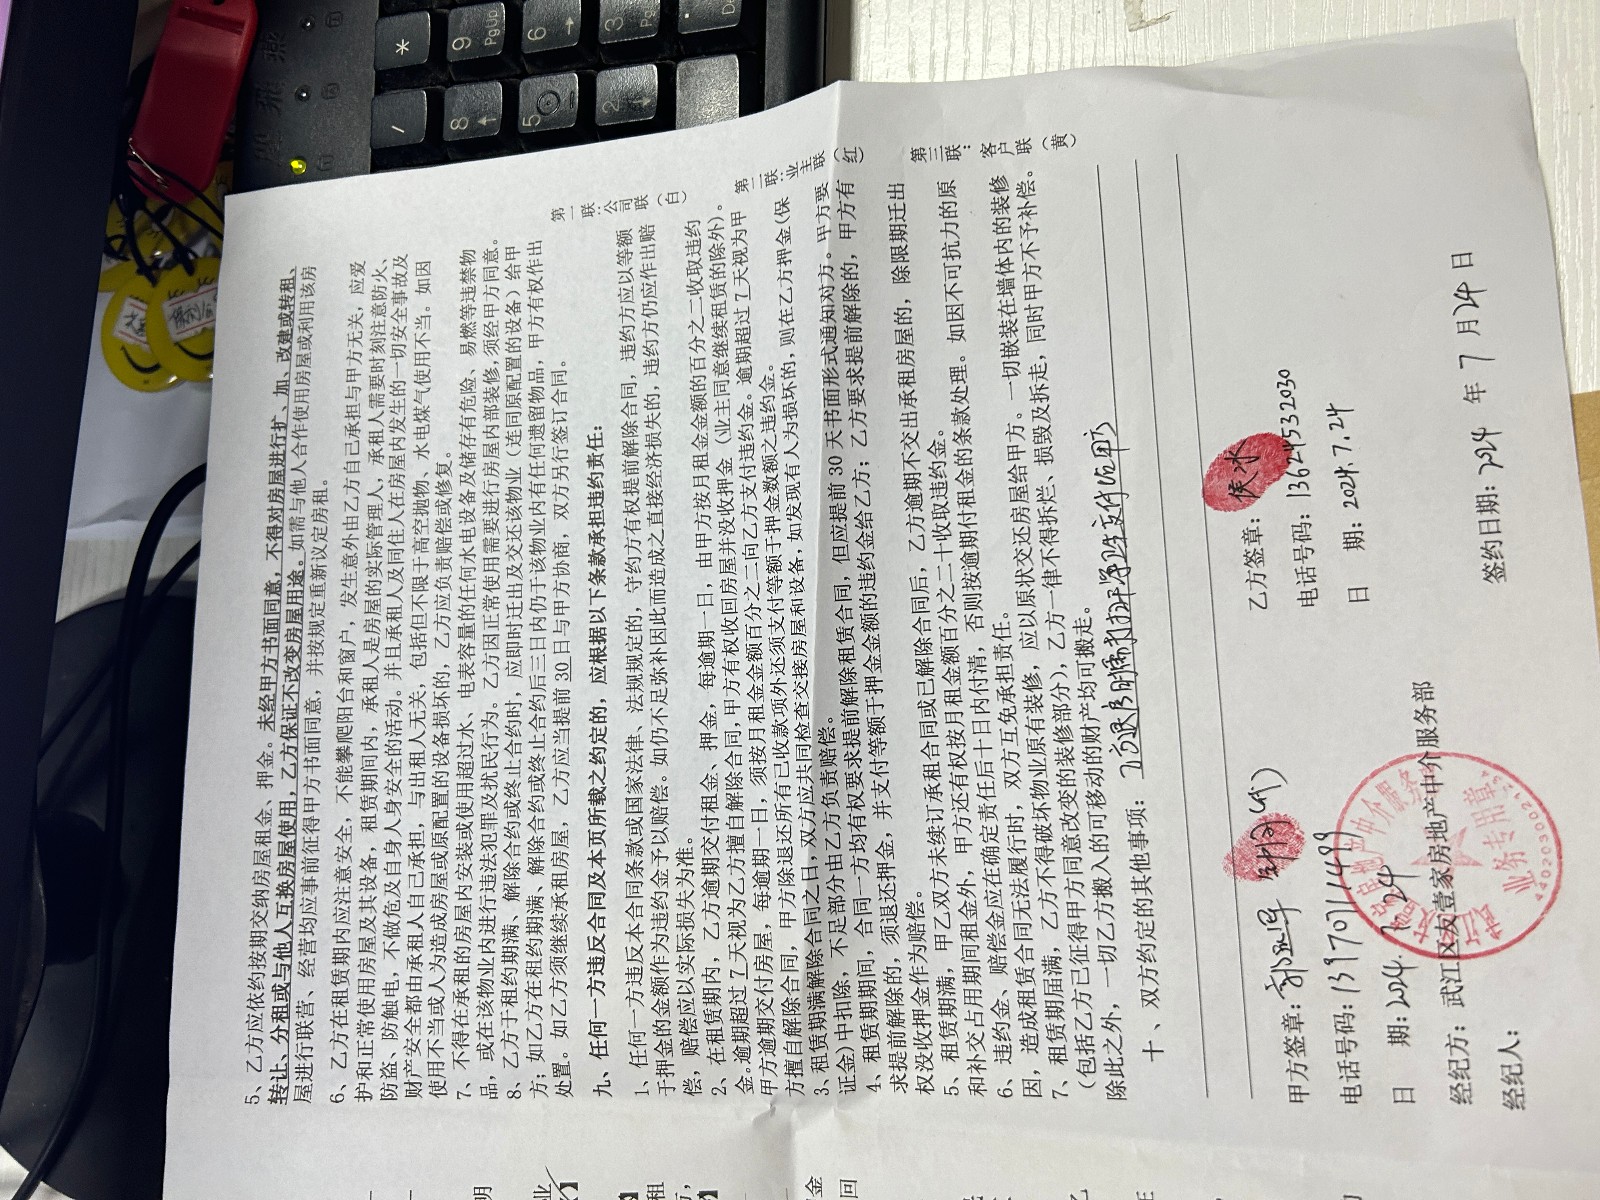 5、乙方应依约按期交纳房屋租金、押金。未经甲方书面同意，不得对房屋进行扩、加、改建或转租、
转让、分租或与他人互换房屋使用，乙方保证不改变房屋用途。如需与他人合作使用房屋或利用该房
屋进行联营、经营均应事前征得甲方书面同意，并按规定重新议定房租。
6、乙方在租赁期内应注意安全，不能攀爬阳台和窗户，发生意外由乙方自己承担与甲方无关，应爱
护和正常使用房屋及其设备，租赁期间内，承租人是房屋的实际管理人，承租人需要时刻注意防火、
防盗、防触电，不做危及自身人身安全的活动。并且承租人及同住人在房屋内发生的一切安全事故及
财产安全都由承租人自己承担，与出租人无关，包括但不限于高空抛物、水电煤气使用不当。如因
使用不当或人为造成房屋或原配置的设备损坏的，乙方应负责赔偿或修复。
7、不得在承租的房屋内安装或使用超过水、电表容量的任何水电设备及储存有危险、易燃等违禁物
品，或在该物业内进行违法犯罪及扰民行为。乙方因正常使用需要进行房屋内部装修,须经甲方同意。
8、乙方于租约期满、解除合约或终止合约时，应即时迁出及交还该物业（连同原配置的设备）给甲
方；如乙方在租约期满、解除合约或终止合约后三日内仍于该物业内有任何遗留物品，甲方有权作出
处置。如乙方须继续承租房屋，乙方应当提前 30 日与甲方协商，双方另行签订合同。
九、任何一方违反合同及本页所载之约定的，应根据以下条款承担违约责任：
1、任何一方违反本合同条款或国家法律、法规规定的，守约方有权提前解除合同，违约方应以等额
于押金的金额作为违约金予以赔偿。如仍不足弥补因此而造成之直接经济损失的，违约方仍应作出赔
偿，赔偿应以实际损失为准。
2、在租赁期内，乙方逾期交付租金、押金，每逾期一日，由甲方按月租金金额的百分之二收取违约
金。逾期超过 7 天视为乙方擅自解除合同，甲方有权收回房屋并没收押金（业主同意继续租赁的除外）。
甲方逾期交付房屋，每逾期一日，须按月租金金额百分之二向乙方支付违约金。逾期超过 7 天视为甲
方擅自解除合同，甲方除退还所有已收款项外还须支付等额于押金数额之违约金。
3、租赁期满解除合同之日，双方应共同检查交接房屋和设备，如发现有人为损坏的，则在乙方押金（保
证金）中扣除，不足部分由乙方负责赔偿。
4、租赁期期间，合同一方均有权要求提前解除租赁合同，但应提前 30 天书面形式通知对方。甲方要
求提前解除的，须退还押金，并支付等额于押金金额的违约金给乙方；乙方要求提前解除的，甲方有
权没收押金作为赔偿。
5、租赁期满，甲乙双方未续订承租合同或已解除合同后，乙方逾期不交出承租房屋的，除限期迁出
和补交占用期间租金外，甲方还有权按月租金额百分之二十收取违约金。
6、违约金、赔偿金应在确定责任后十日内付清，否则按逾期付租金的条款处理。如因不可抗力的原
因，造成租赁合同无法履行时，双方互免承担责任。
7、租赁期届满，乙方不得破坏物业原有装修，应以原状交还房屋给甲方。一切嵌装在墙体内的装修
（包括乙方已征得甲方同意改变的装修部分），乙方一律不得拆烂、损毁及拆走，同时甲方不予补偿。
除此之外，一切乙方搬入的可移动的财产均可搬走。
十、双方约定的其他事项：乙方退房时需打扫干净卫生交付给甲方
第一联:公司联（白）
第二联:业主联（红）
第三联:客户联（黄）
甲方签章：
电话号码：13970711499
日 期：2024.7.24
经纪方：武江区友壹家房地产中介服务部
经纪人：
乙方签章：侯冰
电话号码：13624532030
日 期：2024.7.24
签约日期：2024 年 7 月 24 日
业务专用章